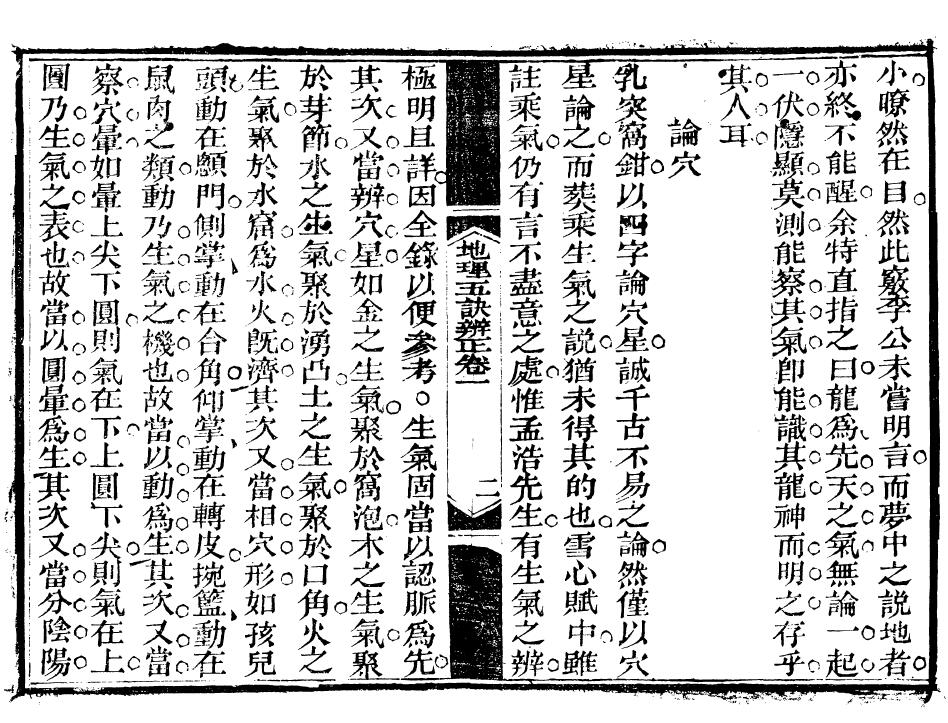 小瞭然在目然此竅李公未嘗明言而夢中之説地者
亦終不能醒余特直指之曰龍爲先天之氣無論一起
一伏隱顯莫測能察其氣卽能識其龍神而明之存乎
其人耳
論穴
乳突窩鉗以四字論穴星誠千古不易之論然僅以穴
星論之而葬乘生氣之説猶未得其的也雪心賦中雖
註乘氣仍有言不盡意之處惟孟浩先生有生氣之辨
地理五訣辨正卷一
二
極明且詳因全錄以便參考○生氣固當以認脈爲先
其次又當辨穴星如金之生氣聚於窩泡木之生氣聚
於芽節水之生氣聚於湧凸土之生氣聚於口角火之
生氣聚於水窟爲水火既濟其次又當相穴形如孩兒
頭動在顖門側掌動在合角仰掌動在轉皮捥籃動在
鼠肉之類動乃生氣之機也故當以動爲生其次又當
察穴暈如暈上尖下圓則氣在下上圓下尖則氣在上
圓乃生氣之表也故當以圓暈爲生其次又當分陰陽